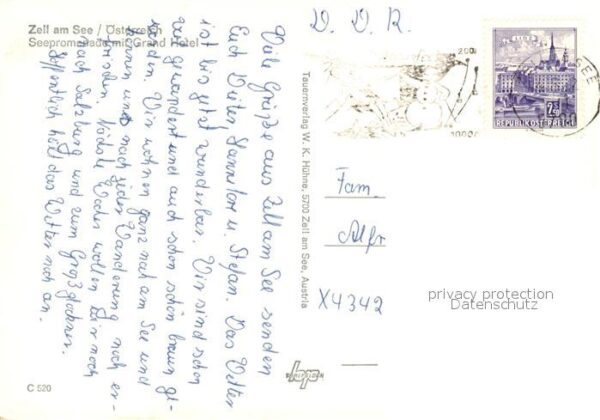 Zell am See / Österreich
Seepromenade mit Grand Hotel
Viele Grüße aus Zell am See senden
Euch Dieter, Hannelore u. Stefan. Das Wetter
ist bis jetzt wunderbar. Wir sind schon
viel gewandert und auch schon schön braun ge-
worden. Wir wohnen ganz nah am See und
können uns nach jeder Wanderung noch er-
frischen. Nächste Woche wollen wir noch
nach Salzburg und zum Großglockner.
Hoffentlich hält das Wetter noch an.
C 520
Tauernverlag W. K. Hühne, 5700 Zell am See, Austria
D. D. R.
200
LINZ
2.50
REPUBLIK ÖSTERREICH
SEE
Fam.
Alfr.
X4342
privacy protection
Datenschutz